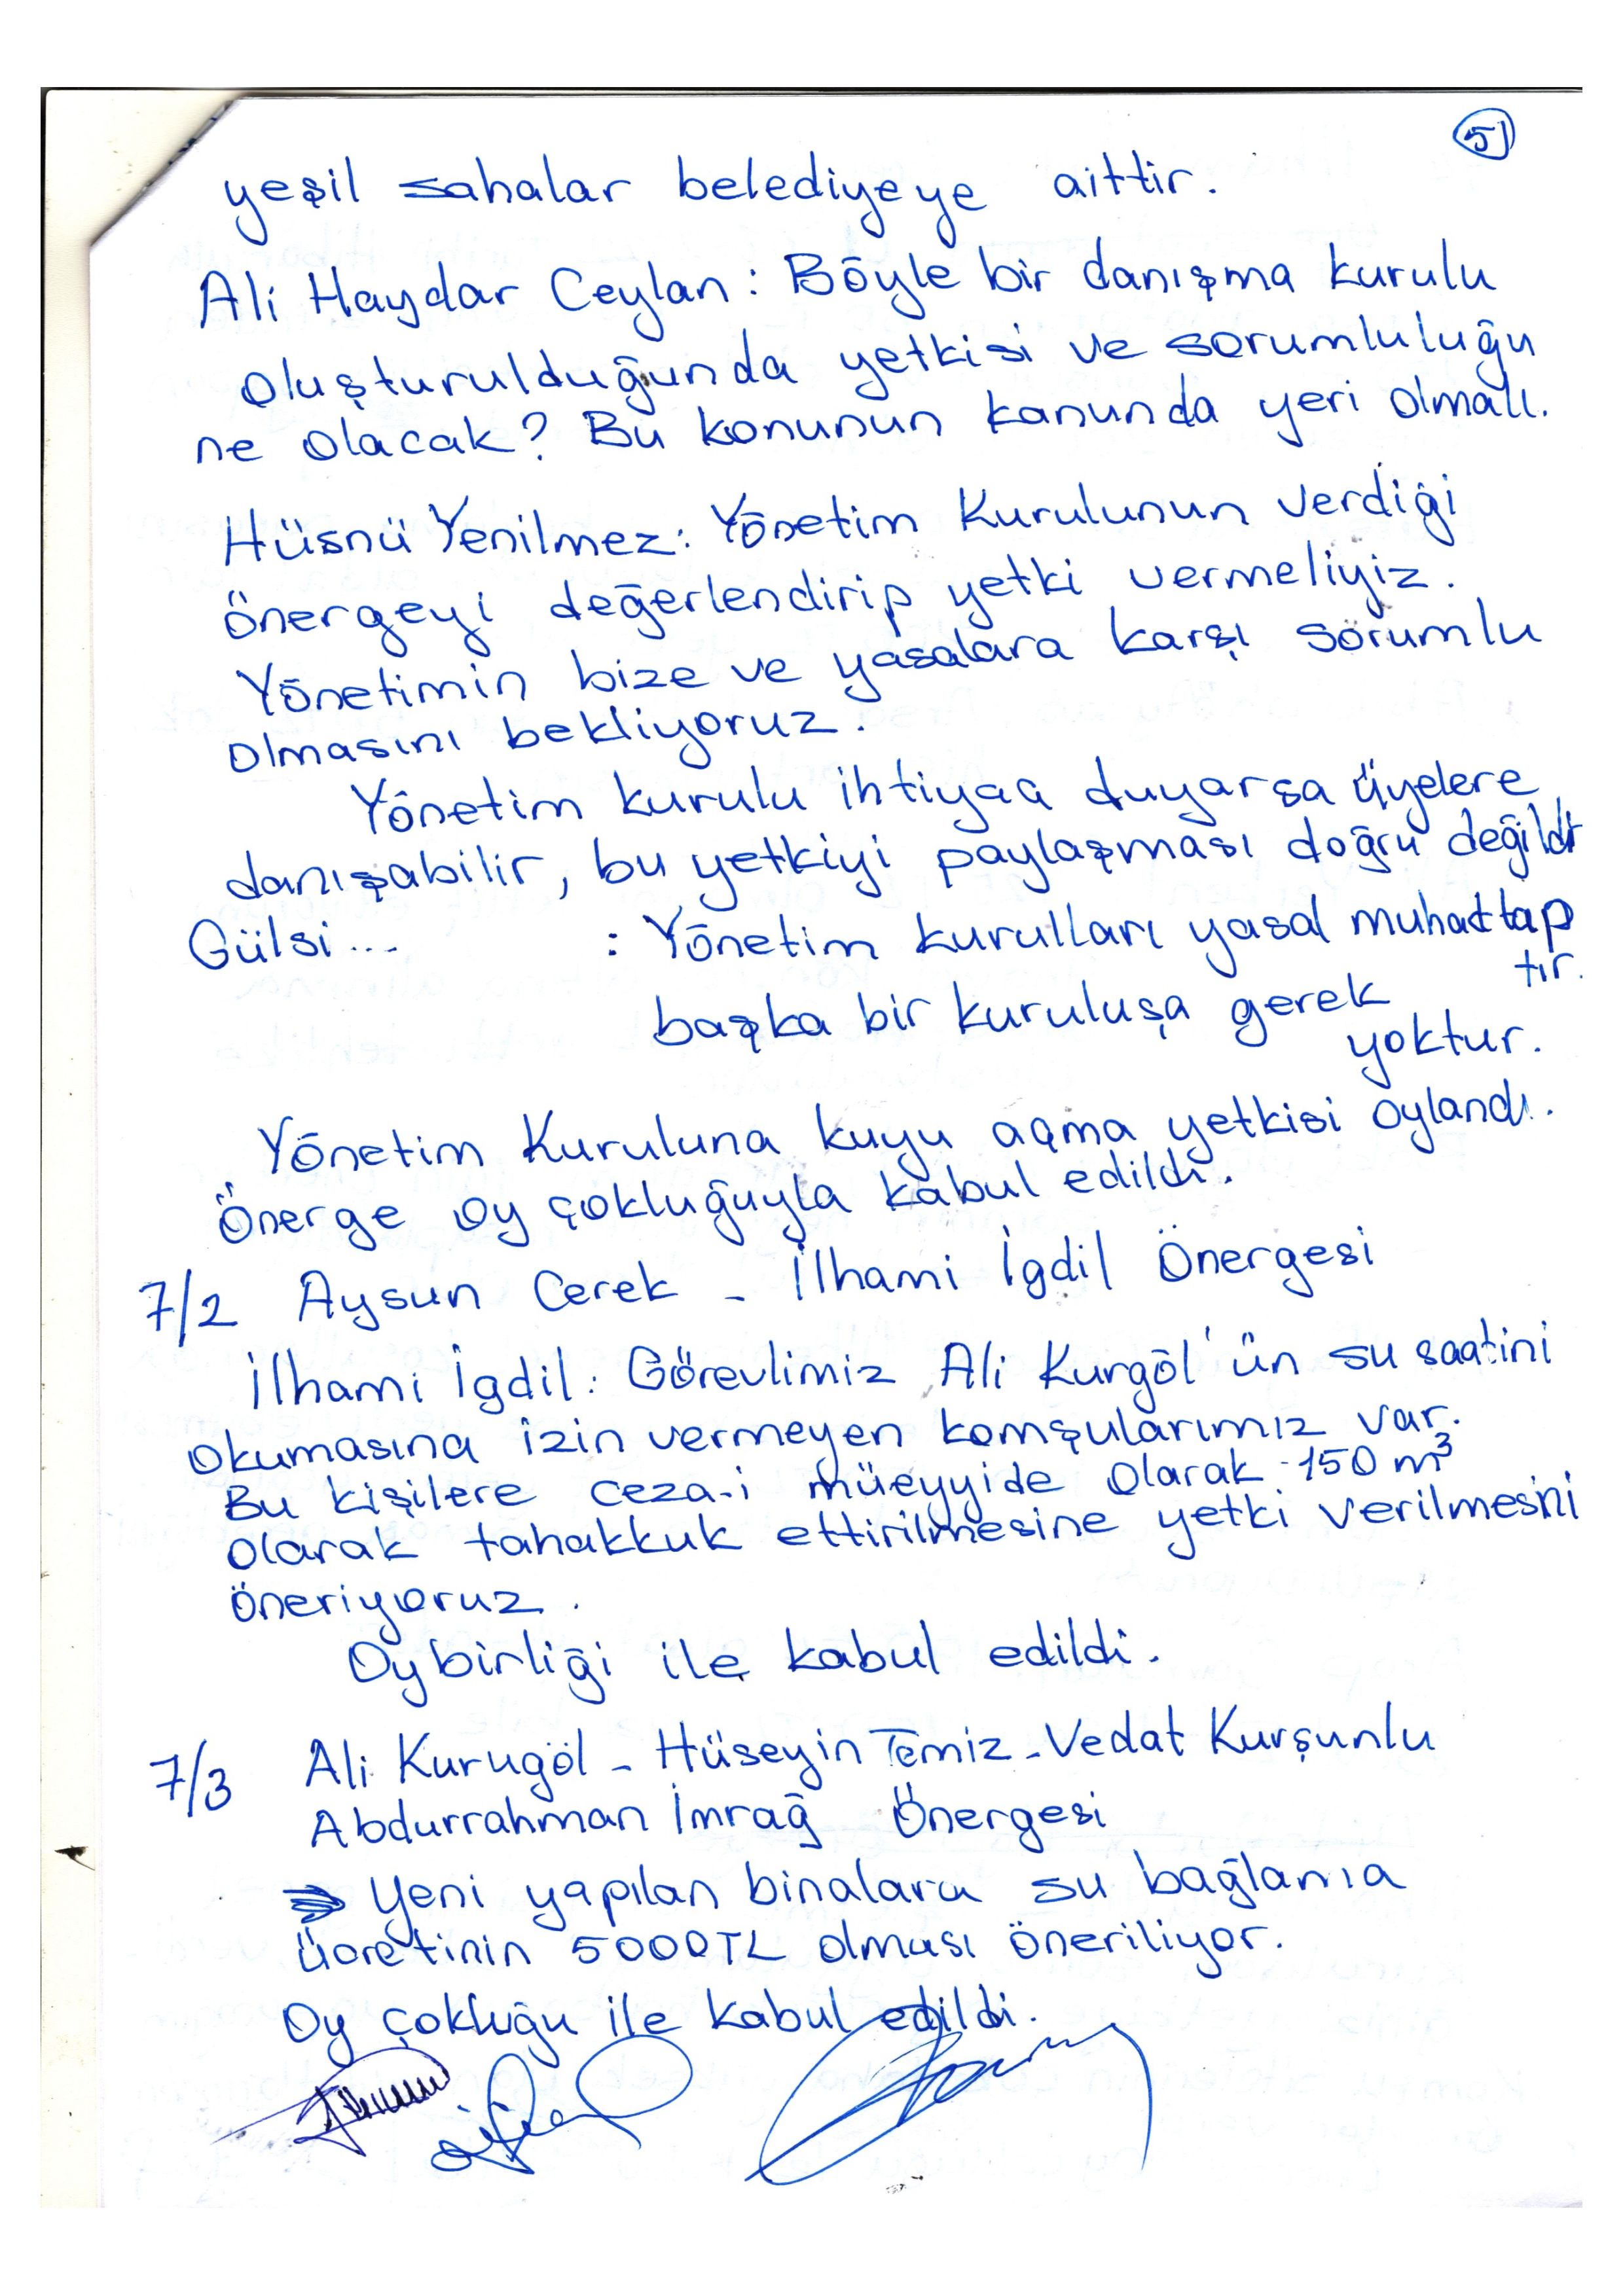 51
yeşil sahalar belediyeye aittir.
Ali Haydar Ceylan: Böyle bir danışma kurulu
oluşturulduğunda yetkisi ve sorumluluğu
ne olacak? Bu konunun kanunda yeri olmalı.
Hüsnü Yenilmez: Yönetim Kurulunun verdiği
önergeyi değerlendirip yetki vermeliyiz.
Yönetimin bize ve yasalara karşı sorumlu
olmasını bekliyoruz.
Yönetim kurulu ihtiyaç duyarsa üyelere
danışabilir, bu yetkiyi paylaşması doğru değildir
Gülsi... : Yönetim kurulları yasal muhattap
tır.
başka bir kuruluşa gerek
yoktur.
Yönetim Kuruluna kuyu açma yetkisi oylandı.
Önerge oy çokluğuyla kabul edildi.
7/2 Aysun Cerek - İlhami İgdil Önergesi
İlhami İgdil: Görevlimiz Ali Kurgöl'ün su saatini
okumasına izin vermeyen komşularımız var.
Bu kişilere ceza-i müeyyide olarak 150 m³
olarak tahakkuk ettirilmesine yetki verilmesini
öneriyoruz.
Oybirliği ile kabul edildi.
7/3 Ali Kurugöl - Hüseyin Temiz - Vedat Kurşunlu
Abdurrahman İmrağ Önergesi
Yeni yapılan binalara su bağlama
ücretinin 5000TL olması öneriliyor.
Oy çokluğu ile kabul edildi.